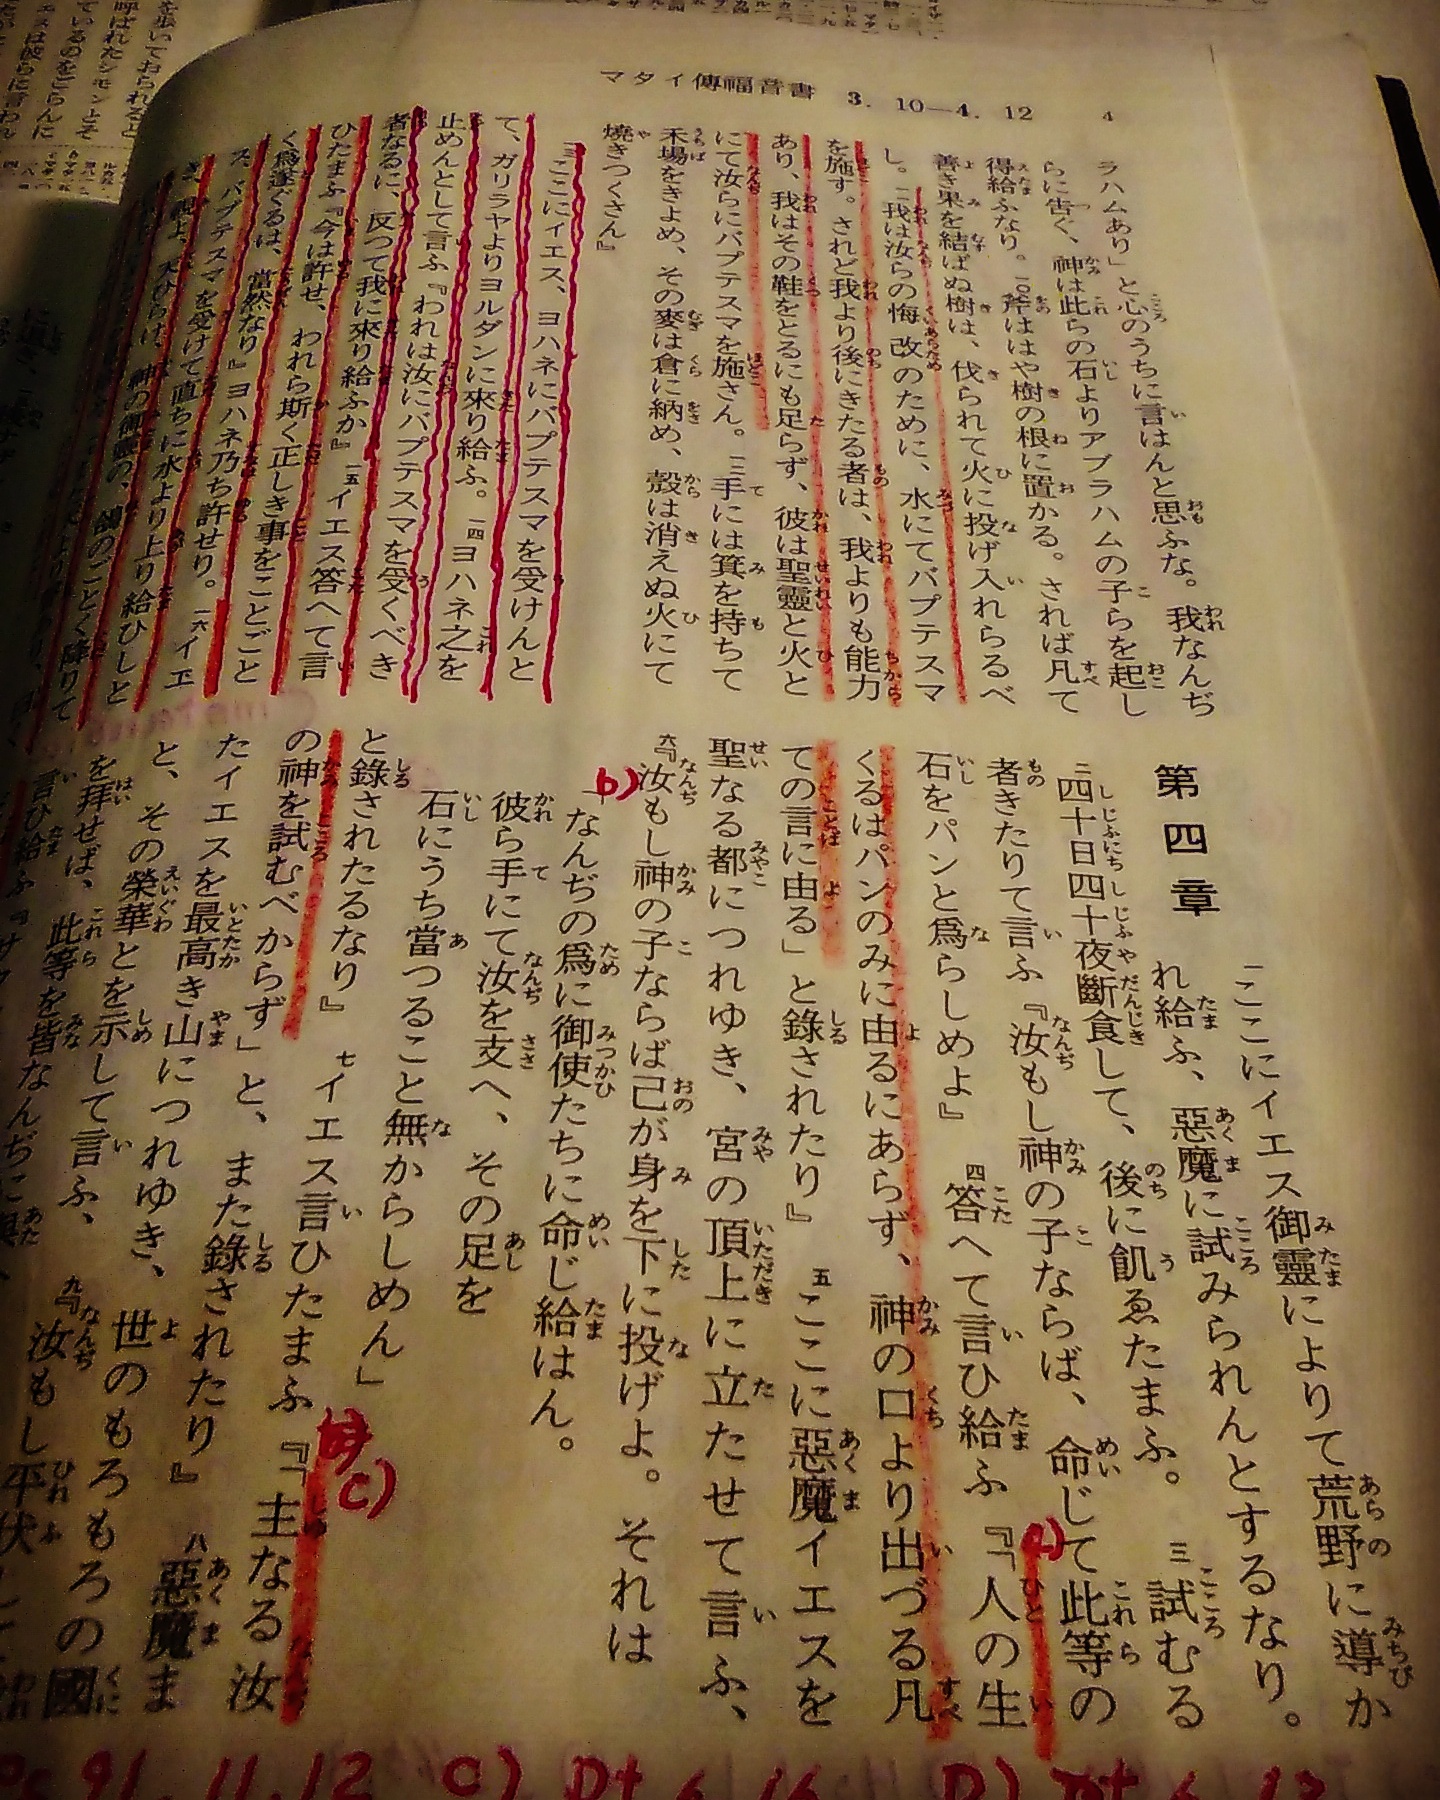 マタイ傳福音書 3. 10—4. 12 4
ラハムあり」と心のうちに言はんと思ふな。我なんぢ
らに告ぐ、神は此らの石よりアブラハムの子らを起し
得給ふなり。一〇斧ははや樹の根に置かる。されば凡て
善き果を結ばぬ樹は、伐られて火に投げ入れらるべ
し。二我は汝らの悔改のために、水にてバプテスマ
を施す。されど我より後にきたる者は、我よりも能力
あり、我はその鞋をとるにも足らず、彼は聖靈と火と
にて汝らにバプテスマを施さん。三手には箕を持ちて
禾場をきよめ、その麥は倉に納め、殼は消えぬ火にて
燒きつくさん』
三ここにイエス、ヨハネにバプテスマを受けんと
て、ガリラヤよりヨルダンに來り給ふ。一四ヨハネ之を
止めんとして言ふ『われは汝にバプテスマを受くべき
者なるに、反つて我に來り給ふか』一五イエス答へて言
ひたまふ『今は許せ、われら斯く正しき事をことごと
く爲遂ぐるは、當然なり』ヨハネ乃ち許せり。一六イエ
ス、バプテスマを受けて直ちに水より上り給ひしと
き、視よ、天ひらけ、神の御靈の、鴿のごとく降りて
第四章
ここにイエス御靈によりて荒野に導か
れ給ふ、惡魔に試みられんとするなり。
二四十日四十夜斷食して、後に飢ゑたまふ。三試むる
者きたりて言ふ『汝もし神の子ならば、命じて此等の
石をパンと爲らしめよ』四答へて言ひ給ふ『「人の生
くるはパンのみに由るにあらず、神の口より出づる凡
ての言に由る」と錄されたり』五ここに惡魔イエスを
聖なる都につれゆき、宮の頂上に立たせて言ふ、
六『汝もし神の子ならば己が身を下に投げよ。それは
b)
なんぢの爲に御使たちに命じ給はん。
彼ら手にて汝を支へ、その足を
石にうち當つること無からしめん」
と錄されたるなり』七イエス言ひたまふ『「主なる汝
c)
の神を試むべからず」と、また錄されたり』八惡魔ま
たイエスを最高き山につれゆき、世のもろもろの國
と、その榮華とを示して言ふ、九『汝もし平伏し
を拜せば、此等を皆なんぢに與
言ひ給ふ『サ
91. 11. 12 C) Dt 6. 16 D) Dt 6. 13